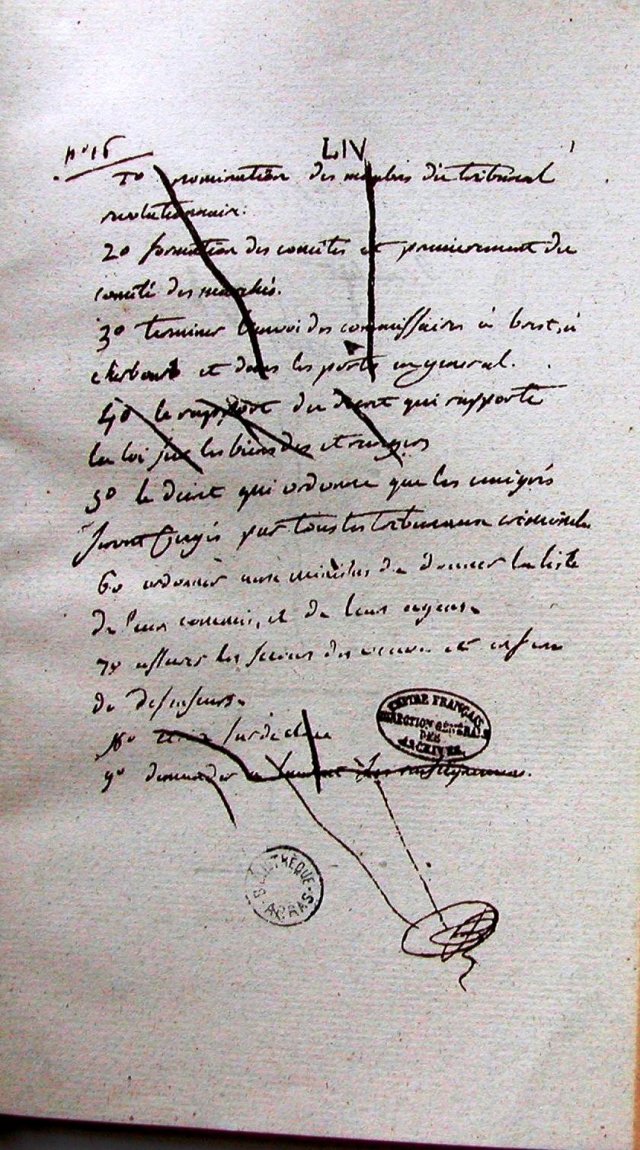 n° 16
LIV
1° nomination des membres du tribunal
revolutionnaire.
2° formation des comités et premierement du
comité des marchés.
3° terminer l'envoi des commissaires à brest, à
cherbourg et dans les ports en general.
4° le rapport du decret qui rapporte
la loi sur les biens des etrangers
5° le decret qui ordonne que les emigrés
seront jugés par tous les tribunaux criminels
6° ordonner aux ministres de donner la liste
de leurs commis, et de leurs agens.
7° assurer les secours des veuves et enfans
de defenseurs.
8° sur
9° demander
CENTRE FRANÇAIS
DIRECTION GÉNÉRALE
DES
ARCHIVES.
BIBLIOTHÈQUE
ARRAS